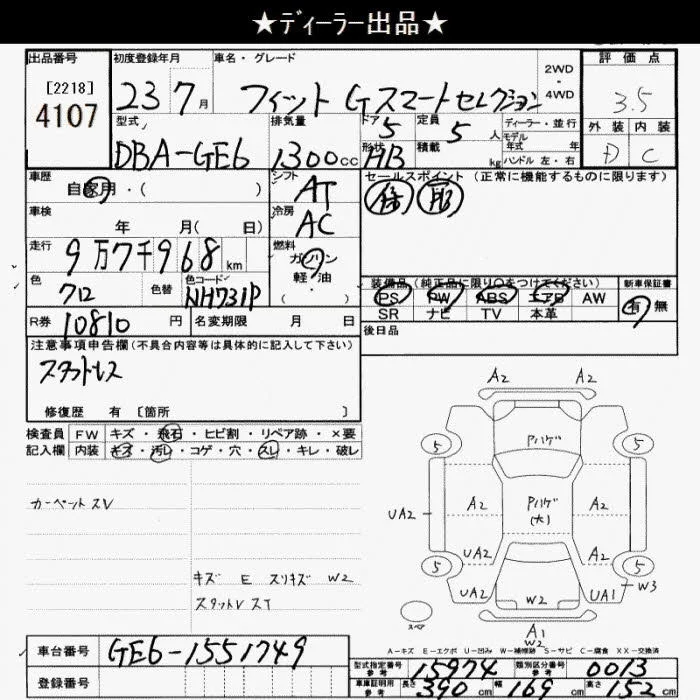 ★ディーラー出品★
出品番号
[2218]
4107
初度登録年月
23年7月
車名・グレード
フィット Gスマートセレクション
2WD・4WD
評価点
3.5
外装 内装
D C
型式
DBA-GE6
排気量
1300cc
ドア 5
形状 HB
定員 5人
積載 kg
ディーラー・並行
モデル年式 年
ハンドル 左・右
車歴
自家用・( )
シフト AT
セールスポイント(正常に機能するものに限ります)
車検
年 月( 日)
冷房 AC
走行
9万7千968km
燃料
ガソリン
軽・油
( )
色
クロ
色替
色コード
NH731P
装備品(純正品に限り○をつけてください)
PS PW ABS エアB AW
SR ナビ TV 本革
新車保証書
有 無
R券 10810円
名変期限 月 日
後日品
注意事項申告欄(不具合内容等は具体的に記入して下さい)
スタットレス
修復歴 有 [箇所 ]
検査員記入欄
FW キズ・飛石・ヒビ割・リペア跡・×要
内装 キズ・汚レ・コゲ・穴・スレ・キレ・破レ
カーペットスV
キズ E スリキズ W2
スタットV スT
A2 A2
Pハゲ
5 5
A2 A2
Pハゲ
(大)
UA2
UA2 A2
5 5
UA2 W2 UA1 W3
スペア
A1
W2
A-キズ E-エクボ U-凹み W-補修跡 S-サビ C-腐食 XX-交換済
車台番号
GE6-1551749
登録番号
型式指定番号 参考 15974
類別区分番号 参考 0013
車庫証明用 参考 長さ 390cm 幅 169cm 高さ 152cm